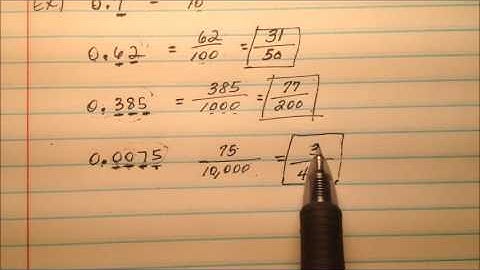 Ex) 0.1 = 10
0.62 = 62/100 = 31/50
0.385 = 385/1000 = 77/200
0.0075 75/10,000 = 3/4